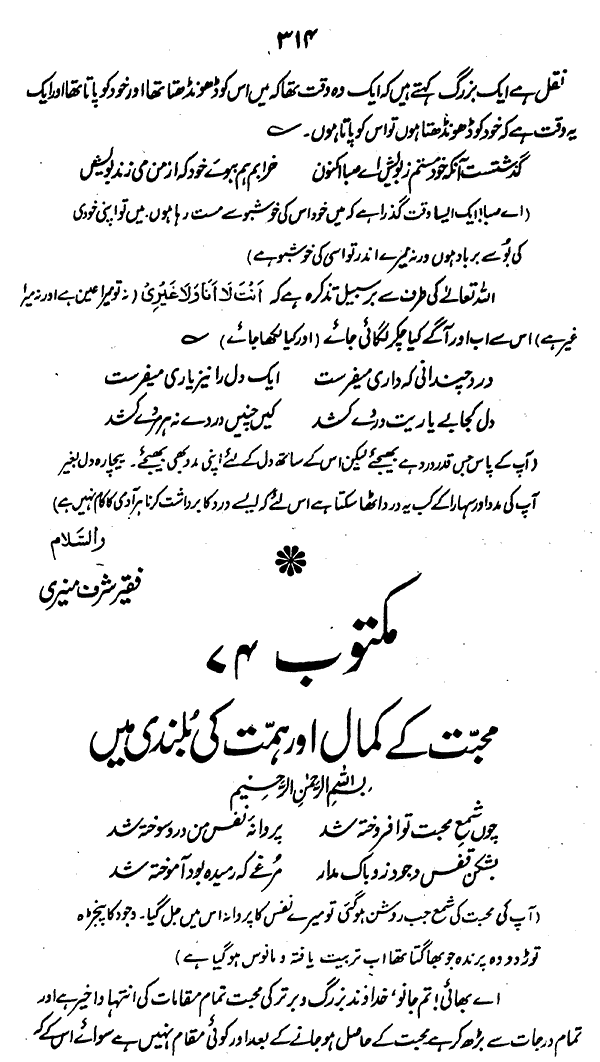 ۳۱۴
نقل ہے ایک بزرگ کہتے ہیں کہ ایک وہ وقت تھا کہ میں اس کو ڈھونڈھتا تھا اور خود کو پاتا تھا اور ایک
یہ وقت ہے کہ خود کو ڈھونڈھتا ہوں تو اس کو پاتا ہوں۔ ؎
گذشتست آنکہ خود مستم زبویش اے صبا اکنون خرابم ہم ببوئے خود کہ از من می زند بویش
(اے صبا! ایک ایسا وقت گذرا ہے کہ میں خود اس کی خوشبو سے مست رہا ہوں۔ میں تو اپنی خودی
کی بُو سے برباد ہوں ورنہ میرے اندر تو اسی کی خوشبو ہے)
اللہ تعالےٰ کی طرف سے بر سبیل تذکرہ ہے کہ اَنْتَ لَا اَنَا وَلَا غَیْرِیْ (نہ تو میرا عین ہے اور نہ میرا
غیر ہے) اس سے اب اور آگے کیا چکر لگائی جائے (اور کیا لکھا جائے) ؎
درد چندانی کہ داری میفرست ایک دل را نیز یاری میفرست
دل کجا بے یاریت دردے کشد کیں چنیں دردے نہ ہر مردے کشد
(آپ کے پاس جس قدر درد ہے بھیجئے لیکن اس کے ساتھ دل کے لئے اپنی مدد بھی بھیجئے۔ بیچارہ دل بغیر
آپ کی مدد اور سہارا کے کب یہ درد اٹھا سکتا ہے اس لئے کہ ایسے درد کا برداشت کرنا ہر آدمی کا کام نہیں ہے)
والسّلام
فقیر شرف منیری
مکتوب ۷۴
محبّت کے کمال اور ہمّت کی بُلندی میں
بسم اللہ الرحمٰن الرحیم
چوں شمع محبت تو افروختہ شد پروانۂ نفس من درو سوختہ شد
بشکن قفس وجود زو باک مدار مُرغے کہ رمیدہ بود آموختہ شد
(آپ کی محبت کی شمع جب روشن ہوگئی تو میرے نفس کا پروانہ اس میں جل گیا۔ وجود کا پنجڑہ
توڑ دو وہ پرندہ جو بھاگتا تھا اب تربیت یافتہ و مانوس ہو گیا ہے)
اے بھائی! تم جانو، خداوند بزرگ و برتر کی محبت تمام مقامات کی انتہا و اخیر ہے اور
تمام درجات سے بڑھ کر ہے محبت کے حاصل ہو جانے کے بعد اور کوئی مقام نہیں ہے سوائے اس کے کہ